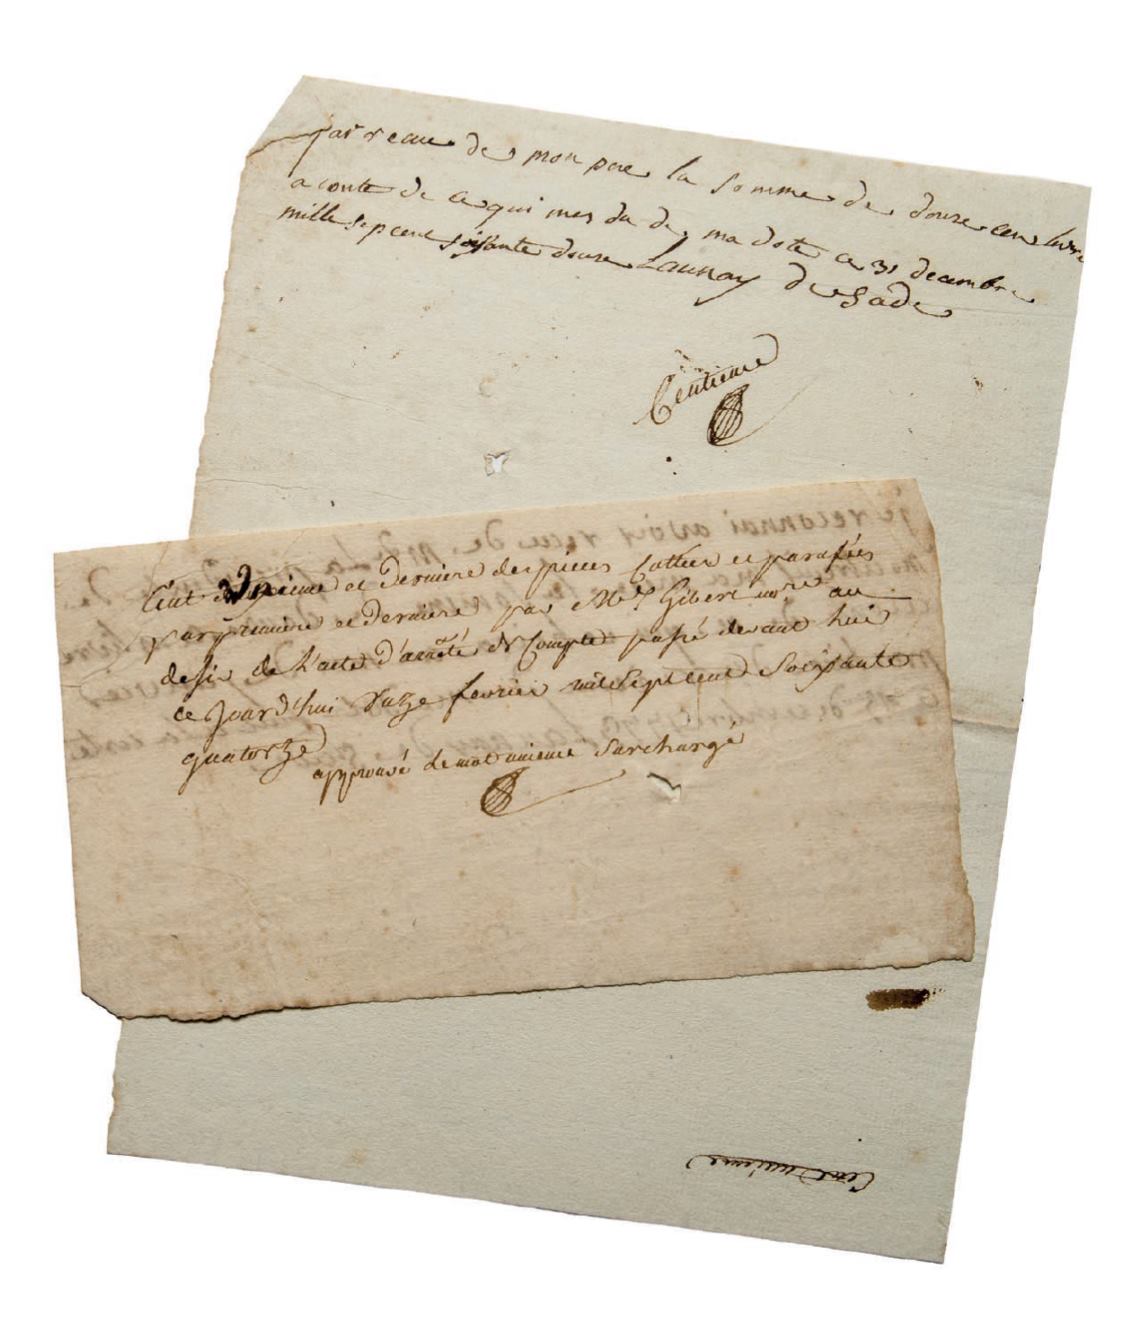 jai reçue de mon pere la somme de douse cen livre
a conte de ce qui mes du de ma dote ce 31 decembre
mille sepcent soisante douse Launay de Sade
Centieme
Cent unieme et derniere des pieces cottées et parafées
par premiere et derniere par Me Gibert nore au
desir de l'acte d'arrêté de Compte passé devant lui
ce jourd'hui douze fevrier mil sept cent soixante
quatorze
approuvé le mot unieme surchargé
je reconnai avoir recu de
Cent unieme